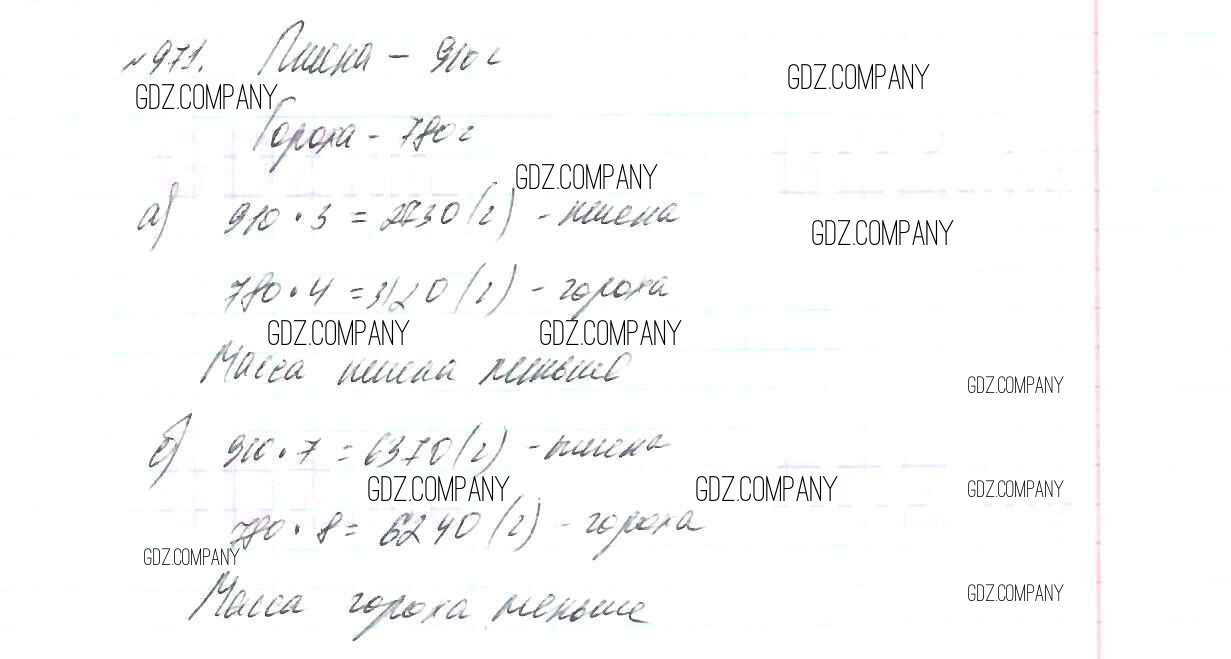 №971. Пшена – 910 г
GDZ.COMPANY
GDZ.COMPANY
Гороха – 780 г
GDZ.COMPANY
а) 910 · 3 = 2730 (г) – пшена
GDZ.COMPANY
780 · 4 = 3120 (г) – гороха
GDZ.COMPANY GDZ.COMPANY
Масса пшена меньше
GDZ.COMPANY
б) 910 · 7 = 6370 (г) – пшена
GDZ.COMPANY GDZ.COMPANY GDZ.COMPANY
780 · 8 = 6240 (г) – гороха
GDZ.COMPANY
Масса гороха меньше
GDZ.COMPANY